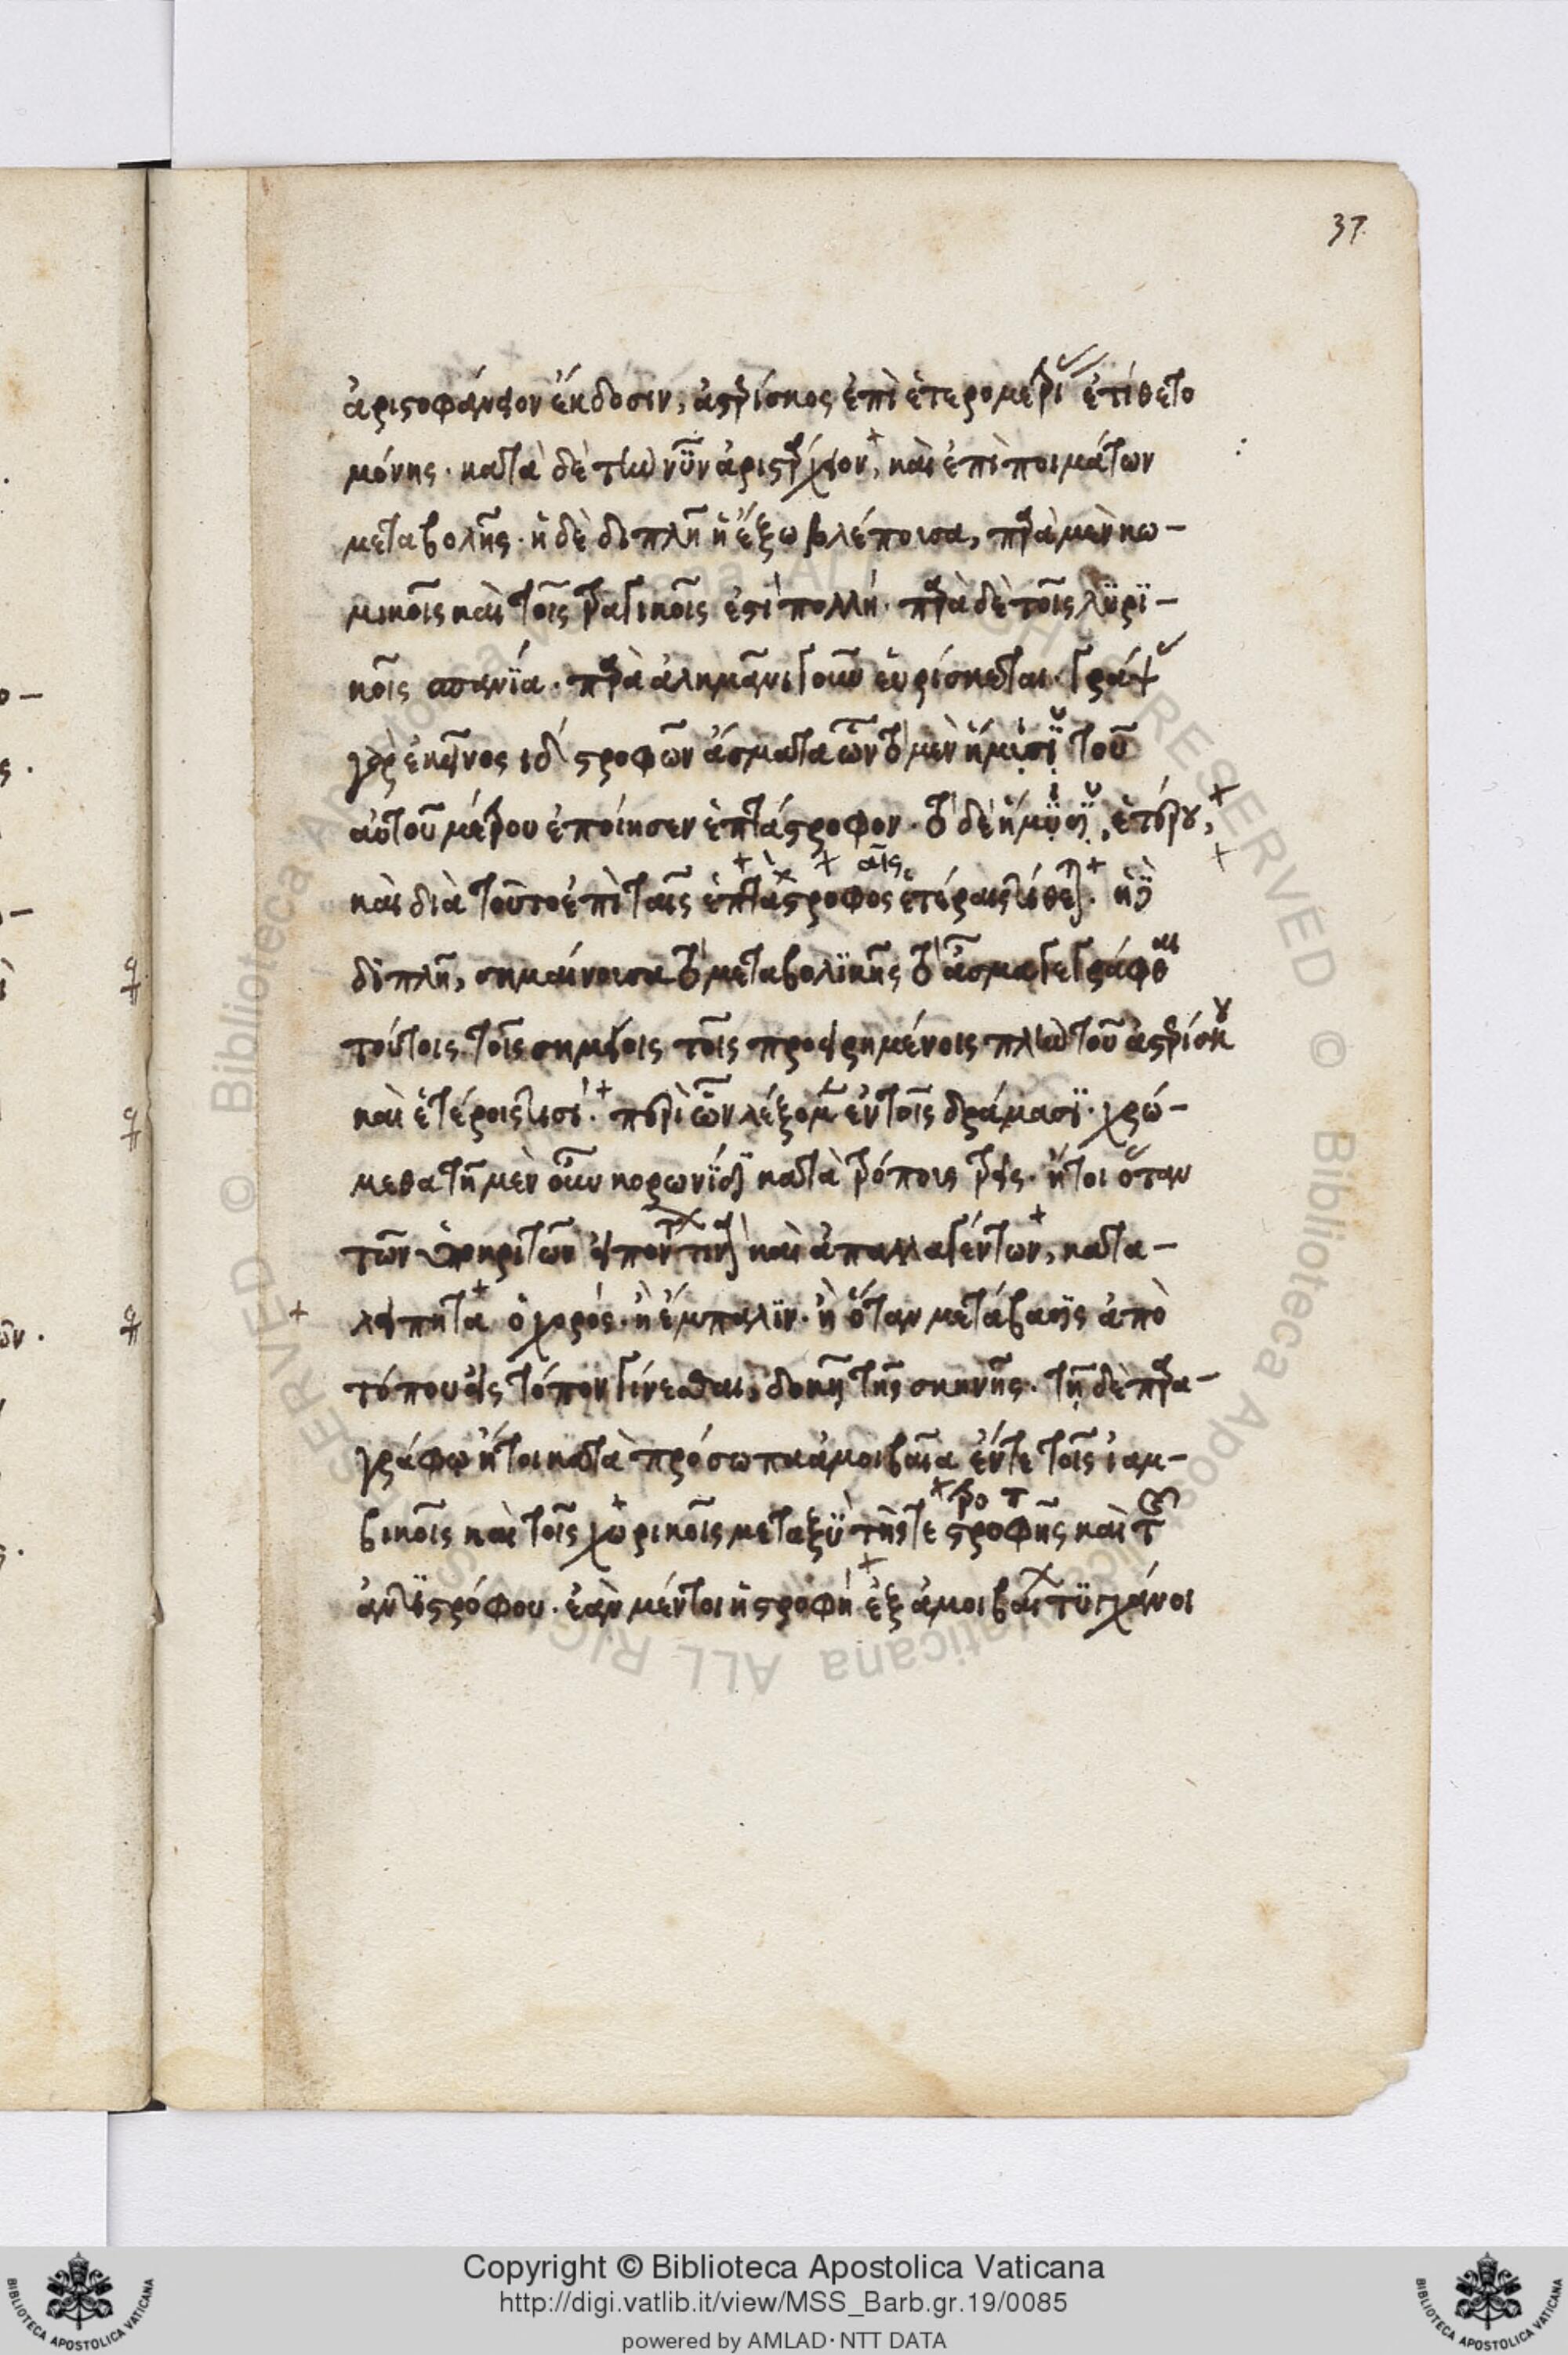 37
ἀριστοφάνειον ἔκδοσιν, ἀστερίσκος ἐπὶ ἑτερομετρι ἐτίθετο
μόνης· κατὰ δὲ τὴν νῦν ἀρισταρχειον, καὶ ἐπὶ ποιμάτων
μεταβολῆς· ἡ δὲ διπλῆ ἡ ἔξω βλέπουσα, παρὰ μὲν κω-
μικοῖς καὶ τοῖς τραγικοῖς ἐστὶ πολλή· παρὰ δὲ τοῖς λϋρϊ-
κοῖς σπανία· παρὰ ἀλκμᾶνι γοῦν εὑρίσκεται· γράψ
γὰρ ἐκεῖνος ιδ στροφῶν ἄσματα ὧν τὸ μὲν ἥμισϋ τοῦ
αὐτοῦ μέτρου ἐποίησεν ἑπτάστροφον· τὸ δὲ ἥμϋσϋ, ἑτέρου,
καὶ διὰ τοῦτο ἐπὶ ταῖς ἑπτάστροφος αῖς ἑτέραις τίθεται· ἡ
διπλῆ, σημαίνουσα τὸ μεταβολϊκῆς τὸ ἆσμα γεγράφθαι
τούτοις τοῖς σημείοις τοῖς προειρημένοις πλὴν τοῦ ἀστερίσκου
καὶ ἑτέροις τισί· περὶ ὧν λέξομεν ἐν τοῖς δράμασϊ· χρώ-
μεθα τῆ μὲν οὖν κορωνίδϊ κατὰ τρόποις τρεῖς· ἤτοι ὅταν
τῶν ὑποκριτῶν εἰπόντων καὶ ἀπαλλαγέντων, κατα-
λείπηται ὁ χορός· ἢ ἔμπαλϊν· ἢ ὅταν μετάβασϊς ἀπὸ
τόπου εἰς τόπον γίνεσθαι, δοκῆ τῆς σκηνῆς· τῇ δὲ παρα-
γράφω ἤτοι κατὰ πρόσωπα ἀμοιβαῖα ἔν τε τοῖς ἰαμ-
βικοῖς καὶ τοῖς χωρικοῖς μεταξὺ τῆς τε στροφῆς καὶ τῶν
ἀντϊστρόφου· ἐὰν μέντοι ἡ στροφὴ ἐξ ἀμοιβαί τϋγχάνοι
Copyright © Biblioteca Apostolica Vaticana
http://digi.vatlib.it/view/MSS_Barb.gr.19/0085
powered by AMLAD·NTT DATA